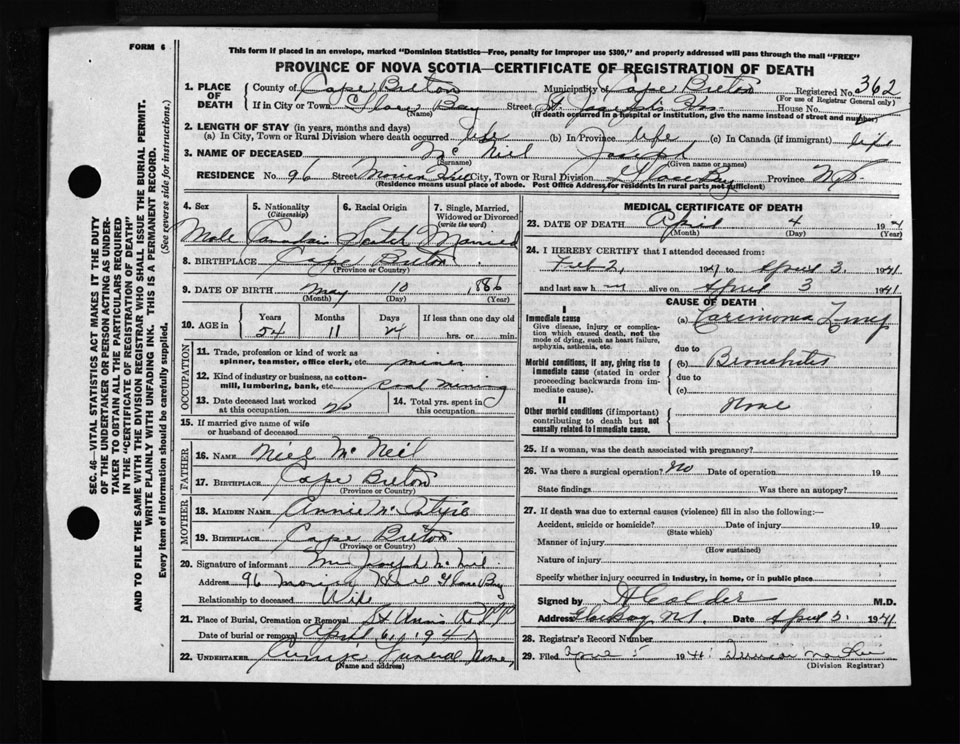 FORM 6
This form if placed in an envelope, marked "Dominion Statistics—Free, penalty for improper use $300," and properly addressed will pass through the mail "FREE"
PROVINCE OF NOVA SCOTIA—CERTIFICATE OF REGISTRATION OF DEATH
1. PLACE OF DEATH
County of Cape Breton Municipality Cape Breton Registered No. 362
(For use of Registrar General only)
If in City or Town Glace Bay Street St. Joseph's House No.
(Name) (If death occurred in a hospital or institution, give the name instead of street and number)
2. LENGTH OF STAY (in years, months and days)
(a) In City, Town or Rural Division where death occurred life (b) In Province life (c) In Canada (if immigrant) life
3. NAME OF DECEASED Mc Niel Joseph
(Surname) (Given name or names)
RESIDENCE No. 96 Street City, Town or Rural Division Glace Bay Province N.S.
(Residence means usual place of abode. Post Office Address for residents in rural parts not sufficient)
4. Sex
5. Nationality (Citizenship)
6. Racial Origin
7. Single, Married, Widowed or Divorced (write the word)
Male Canadian Scotch Married
8. BIRTHPLACE Cape Breton
(Province or Country)
9. DATE OF BIRTH May 10 1886
(Month) (Day) (Year)
10. AGE in Years Months Days If less than one day old
54 11 24 hrs. or min.
OCCUPATION
11. Trade, profession or kind of work as spinner, teamster, office clerk, etc. miner
12. Kind of industry or business, as cotton-mill, lumbering, bank, etc. Coal mining
13. Date deceased last worked at this occupation no
14. Total yrs. spent in this occupation
15. If married give name of wife or husband of deceased
FATHER
16. NAME Niel Mc Neil
17. BIRTHPLACE Cape Breton
(Province or Country)
MOTHER
18. MAIDEN NAME Annie
19. BIRTHPLACE Cape Breton
(Province or Country)
20. Signature of informant Mrs Joseph Mc Neil
Address 96 Glace Bay
Relationship to deceased Wife
21. Place of Burial, Cremation or Removal St Anns
Date of burial or removal April 6, 194
22. UNDERTAKER Funeral Home
(Name and address)
MEDICAL CERTIFICATE OF DEATH
23. DATE OF DEATH April 4 19
(Month) (Day) (Year)
24. I HEREBY CERTIFY that I attended deceased from:
Feb 2, 1941 to April 3. 1941
and last saw h m alive on April 3 1941
CAUSE OF DEATH
I
Immediate cause
Give disease, injury or complication which caused death, not the mode of dying, such as heart failure, asphyxia, asthenia, etc.
(a) Carcinoma Lung
due to
Morbid conditions, if any, giving rise to immediate cause (stated in order proceeding backwards from immediate cause).
(b) Bronchitis
due to
(c)
II
Other morbid conditions (if important) contributing to death but not causally related to immediate cause.
None
25. If a woman, was the death associated with pregnancy?
26. Was there a surgical operation? no Date of operation 19
State findings Was there an autopsy?
27. If death was due to external causes (violence) fill in also the following:—
Accident, suicide or homicide? Date of injury 19
(State which)
Manner of injury
(How sustained)
Nature of injury
Specify whether injury occurred in industry, in home, or in public place
Signed by A Calder M.D.
Address Glace Bay N.S. Date April 5. 1941
28. Registrar's Record Number
29. Filed 5 1941
(Division Registrar)
SEC. 46—VITAL STATISTICS ACT MAKES IT THE DUTY
OF THE UNDERTAKER OR PERSON ACTING AS UNDER-
TAKER TO OBTAIN ALL THE PARTICULARS REQUIRED
IN THE "CERTIFICATE OF REGISTRATION OF DEATH"
AND TO FILE THE SAME WITH THE DIVISION REGISTRAR WHO SHALL ISSUE THE BURIAL PERMIT.
WRITE PLAINLY WITH UNFADING INK. THIS IS A PERMANENT RECORD.
Every item of information should be carefully supplied. (See reverse side for instructions.)